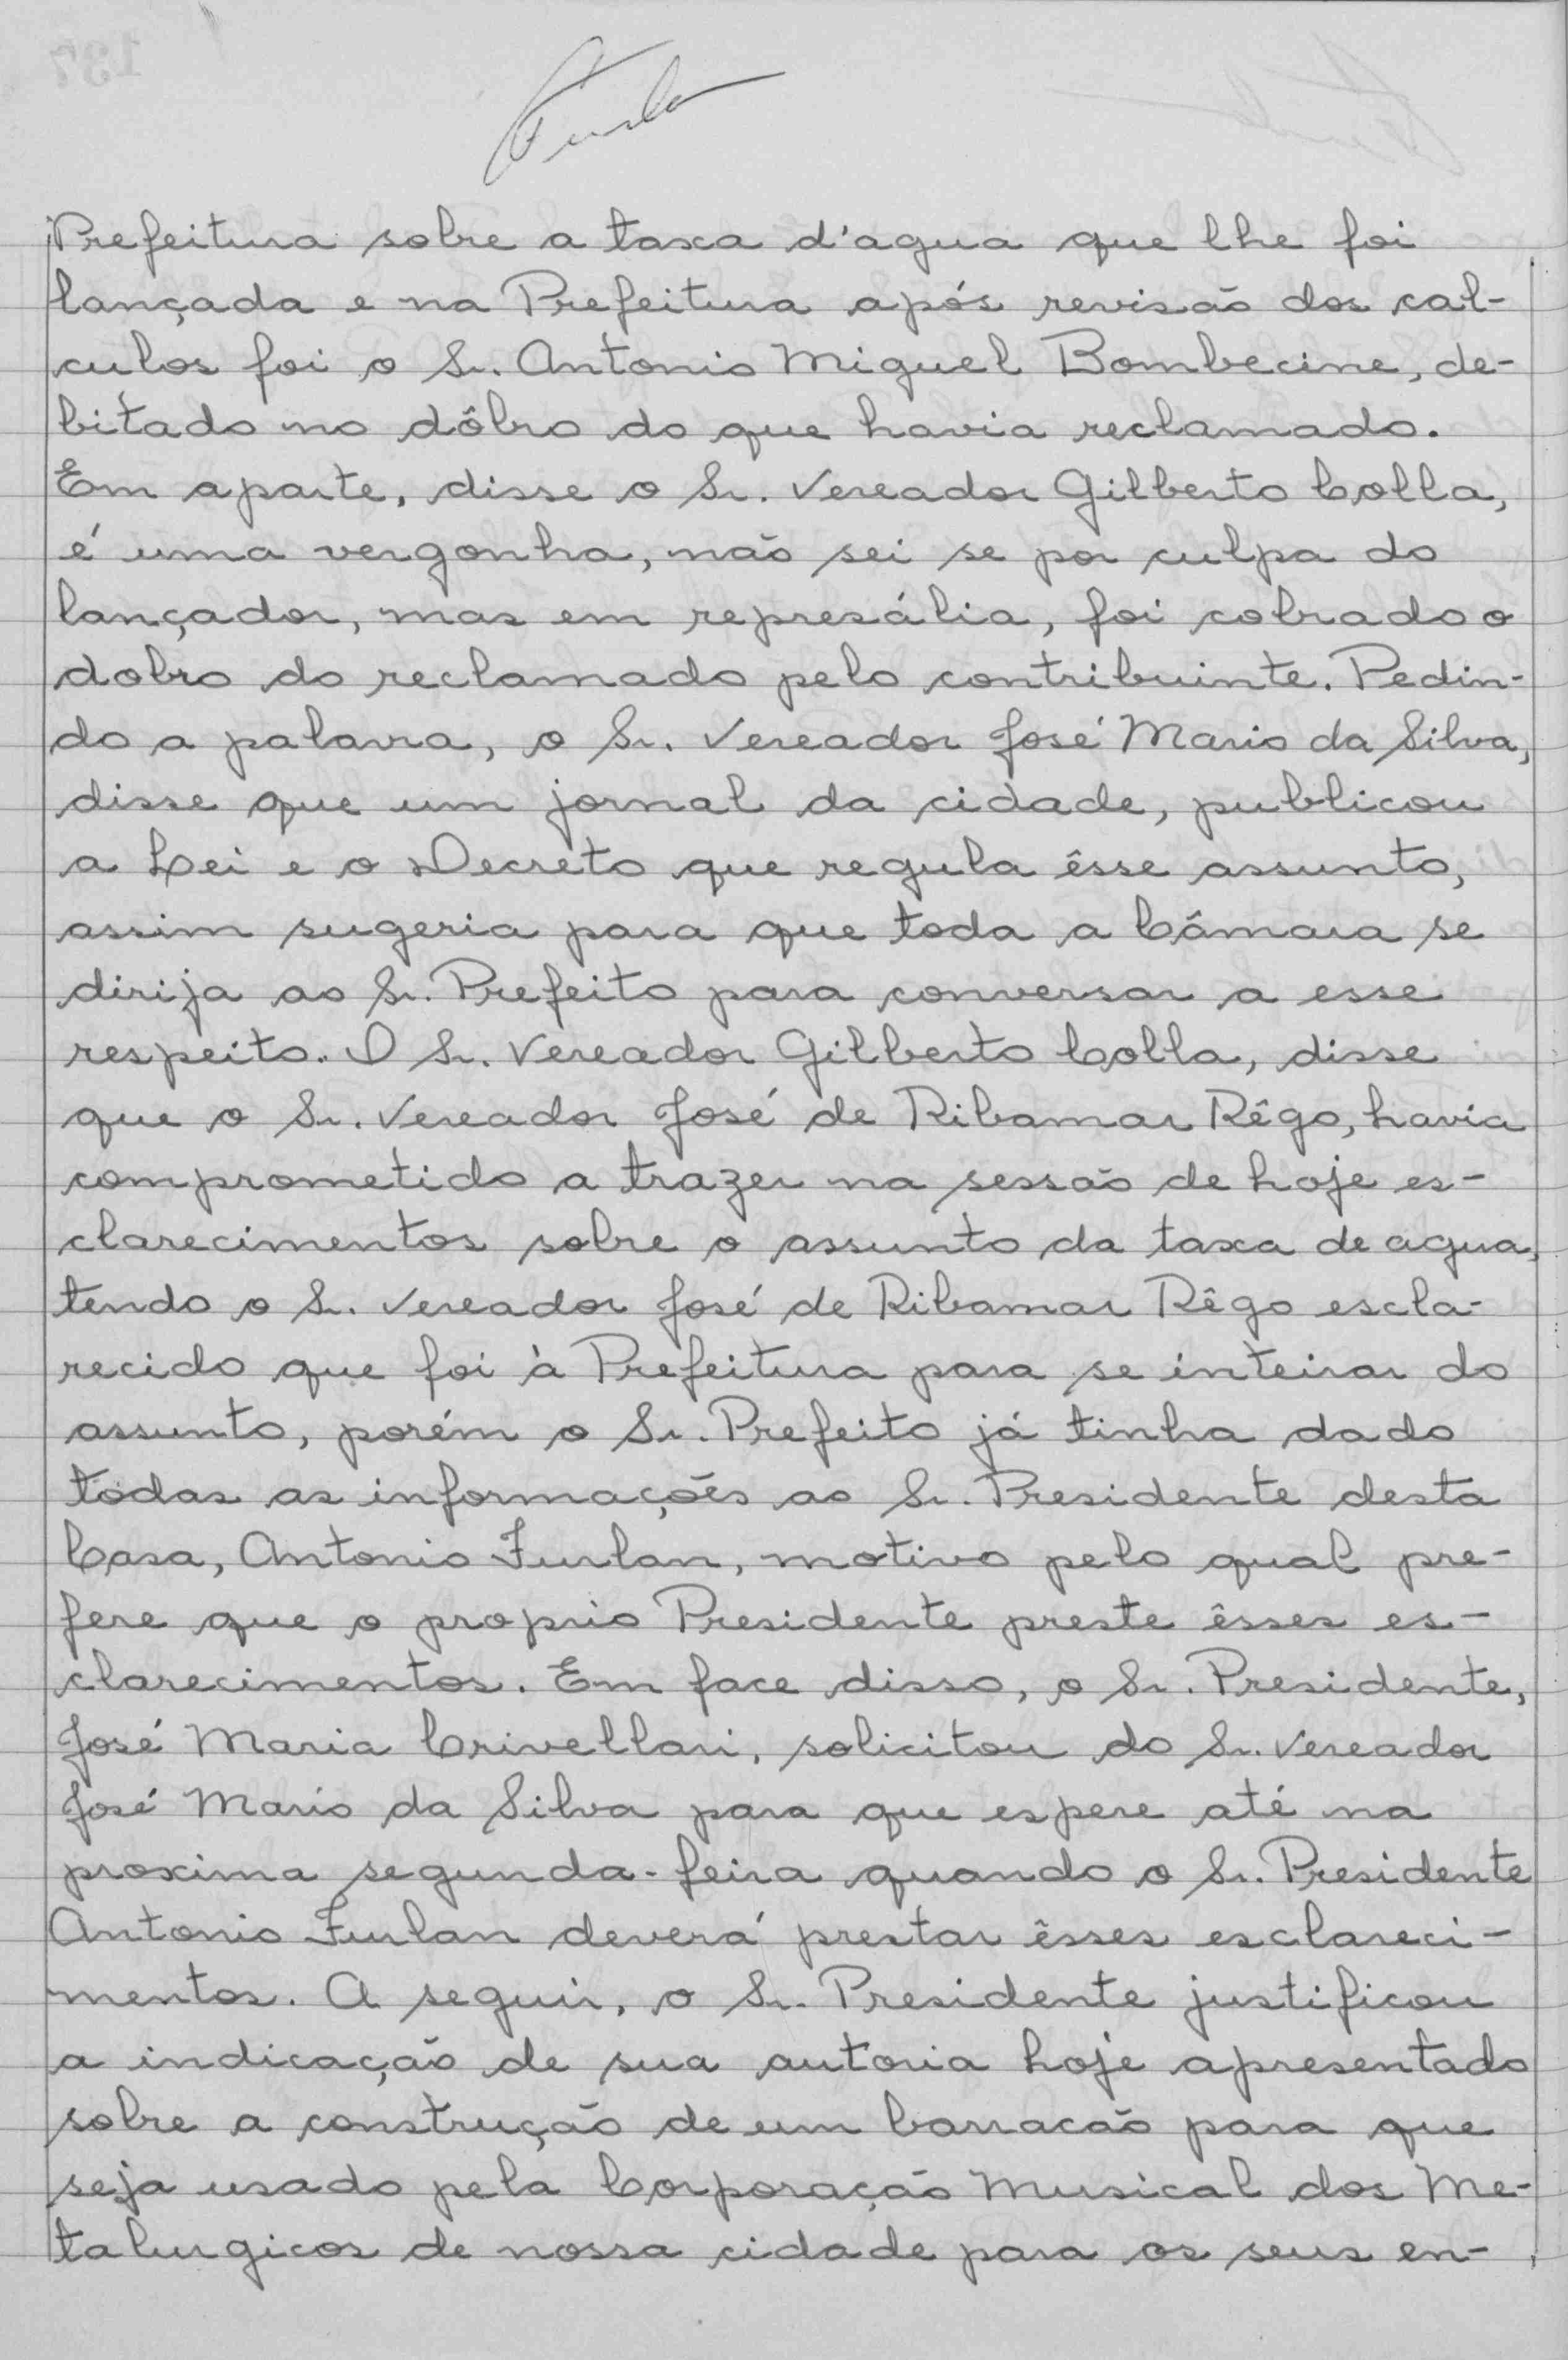 Prefeitura sobre a taxa d'agua que lhe foi
lançada e na Prefeitura após revisão dos cal-
culos foi o Sr. Antonio Miguel Bombecine, de-
bitado no dôbro do que havia reclamado.
Em aparte, disse o Sr. Vereador Gilberto Colla,
é uma vergonha, não sei se por culpa do
lançador, mas em represália, foi cobrado o
dobro do reclamado pelo contribuinte. Pedin-
do a palavra, o Sr. Vereador José Mario da Silva,
disse que um jornal da cidade, publicou
a Lei e o Decreto que regula êsse assunto,
assim sugeria para que toda a Câmara se
dirija ao Sr. Prefeito para conversar a esse
respeito. O Sr. Vereador Gilberto Colla, disse
que o Sr. Vereador José de Ribamar Rêgo, havia
comprometido a trazer na sessão de hoje es-
clarecimentos sobre o assunto da taxa de agua,
tendo o Sr. Vereador José de Ribamar Rêgo escla-
recido que foi à Prefeitura para se inteirar do
assunto, porém o Sr. Prefeito já tinha dado
todas as informações ao Sr. Presidente desta
Casa, Antonio Furlan, motivo pelo qual pre-
fere que o proprio Presidente preste êsses es-
clarecimentos. Em face disso, o Sr. Presidente,
José Maria Crivellari, solicitou do Sr. Vereador
José Mario da Silva para que espere até na
proxima segunda-feira quando o Sr. Presidente
Antonio Furlan deverá prestar êsses esclareci-
mentos. A seguir, o Sr. Presidente justificou
a indicação de sua autoria hoje apresentado
sobre a construção de um barracão para que
seja usado pela Corporação Musical dos Me-
talurgicos de nossa cidade para os seus en-